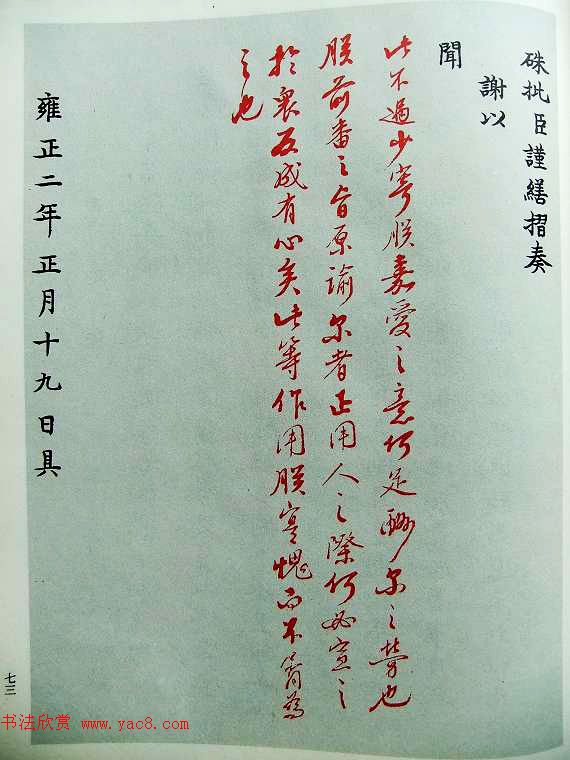 硃批臣謹繕摺奏
謝以
聞
此不過少寄朕嘉愛之意何足酬尔之勞也
朕前番之旨原諭尔者正用人之際何必宣之
於衆反成有心矣此等作用朕寔愧而不肯為
之也
雍正二年正月十九日具
七三
书法欣赏 www.yac8.com